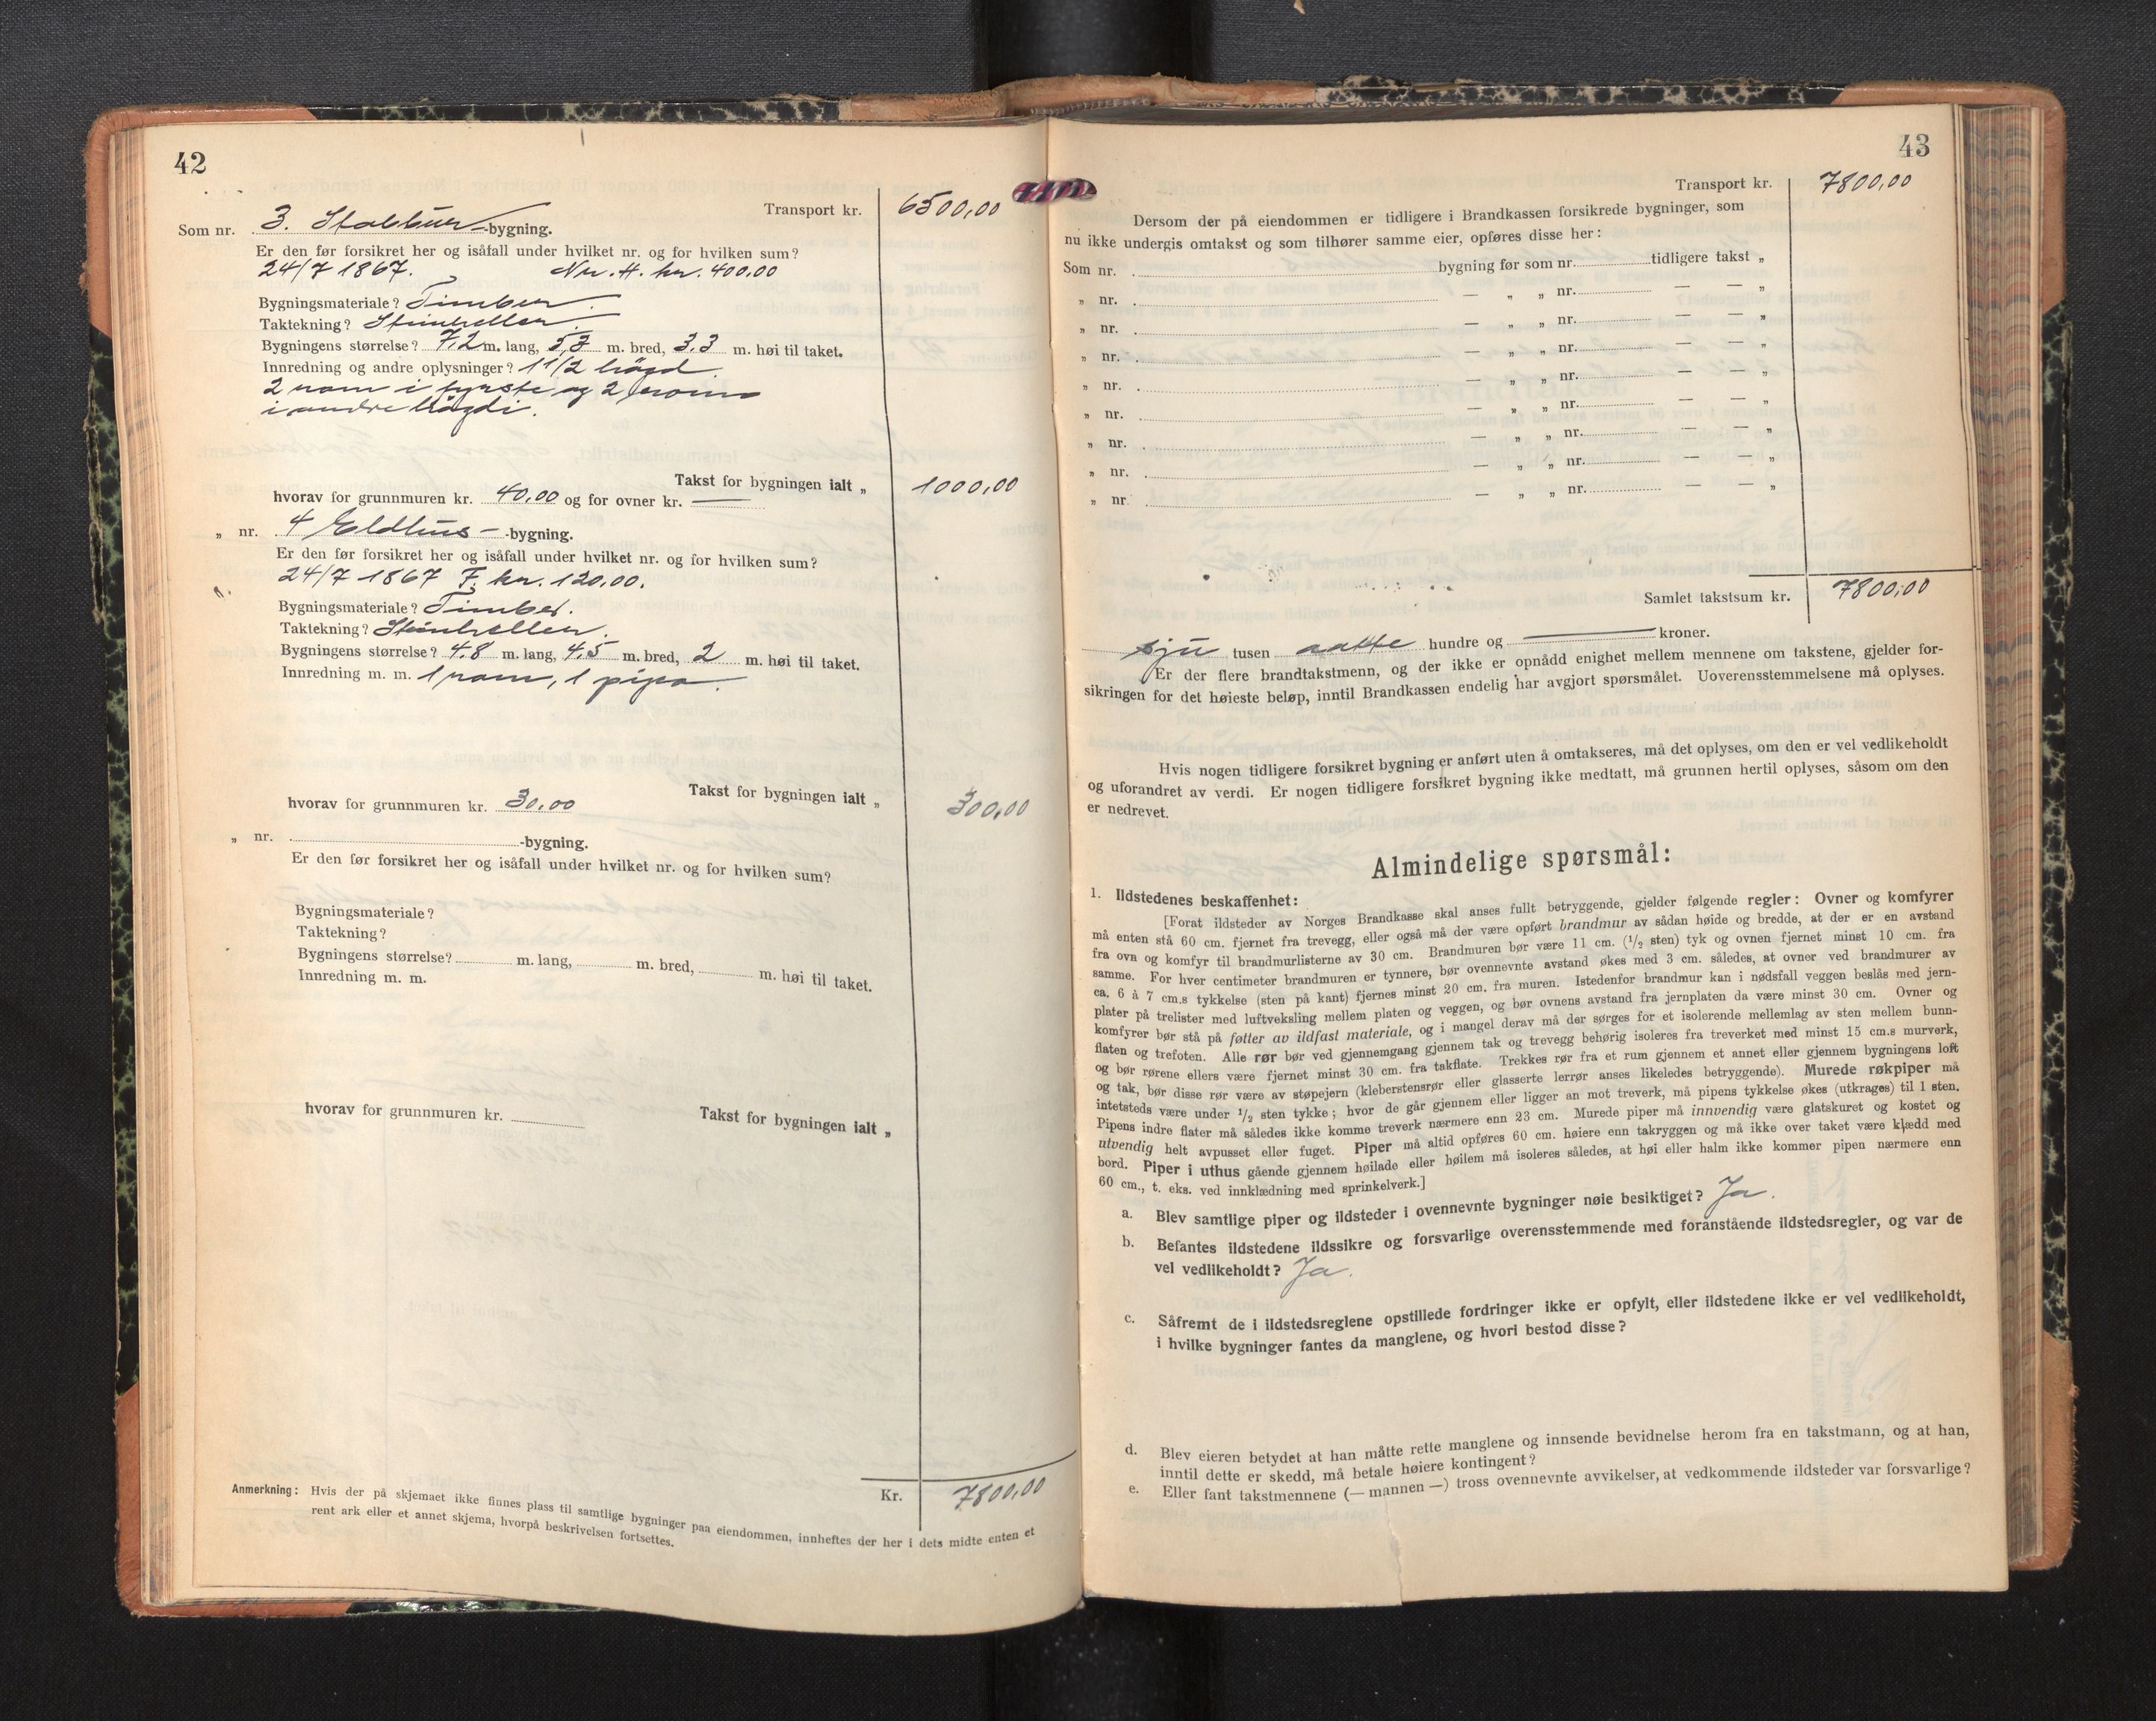 42
Transport kr. 6500,00
Som nr. 3. Stabbur -bygning.
Er den før forsikret her og isåfall under hvilket nr. og for hvilken sum?
24/7 1867. Nr. H. kr. 400.00
Bygningsmateriale? Timber.
Taktekning? Steinheller.
Bygningens størrelse? 7,2 m. lang, 5,3 m. bred, 3,3 m. høi til taket.
Innredning og andre oplysninger? 1 1/2 högd.
2 rom i fyrste og 2 rom
i andre högdi.
Takst for bygningen ialt „ 1000,00
hvorav for grunnmuren kr. 40,00 og for ovner kr. —
„ nr. 4 Eldhus -bygning.
Er den før forsikret her og isåfall under hvilket nr. og for hvilken sum?
24/7 1867 F. kr. 120,00.
Bygningsmateriale? Timber.
Taktekning? Steinheller.
Bygningens størrelse? 4,8 m. lang, 4,5 m. bred, 2 m. høi til taket.
Innredning m. m. 1 rom, 1 pipa.
Takst for bygningen ialt „ 300,00
hvorav for grunnmuren kr. 30,00
„ nr. -bygning.
Er den før forsikret her og isåfall under hvilket nr. og for hvilken sum?
Bygningsmateriale?
Taktekning?
Bygningens størrelse? m. lang, m. bred, m. høi til taket.
Innredning m. m.
hvorav for grunnmuren kr. Takst for bygningen ialt „
Kr. 7800,00
Anmerkning: Hvis der på skjemaet ikke finnes plass til samtlige bygninger paa eiendommen, innheftes der her i dets midte enten et
rent ark eller et annet skjema, hvorpå beskrivelsen fortsettes.
43
Transport kr. 7800,00
Dersom der på eiendommen er tidligere i Brandkassen forsikrede bygninger, som
nu ikke undergis omtakst og som tilhører samme eier, opføres disse her:
Som nr. bygning før som nr. tidligere takst „
„ nr. — „ „ nr. — — „
„ nr. — „ „ nr. — — „
„ nr. — „ „ nr. — — „
„ nr. — „ „ nr. — — „
„ nr. — „ „ nr. — — „
„ nr. — „ „ nr. — — „
„ nr. — „ „ nr. — — „
„ nr. — „ „ nr. — — „
Samlet takstsum kr. 7800,00
sju tusen aatte hundre og — kroner.
Er der flere brandtakstmenn, og der ikke er opnådd enighet mellem mennene om takstene, gjelder for-
sikringen for det høieste beløp, inntil Brandkassen endelig har avgjort spørsmålet. Uoverensstemmelsene må oplyses.
Hvis nogen tidligere forsikret bygning er anført uten å omtakseres, må det oplyses, om den er vel vedlikeholdt
og uforandret av verdi. Er nogen tidligere forsikret bygning ikke medtatt, må grunnen hertil oplyses, såsom om den
er nedrevet.
Almindelige spørsmål:
1. Ildstedenes beskaffenhet:
[Forat ildsteder av Norges Brandkasse skal anses fullt betryggende, gjelder følgende regler: Ovner og komfyrer
må enten stå 60 cm. fjernet fra trevegg, eller også må der være opført brandmur av sådan høide og bredde, at der er en avstand
fra ovn og komfyr til brandmurlisterne av 30 cm. Brandmuren bør være 11 cm. (1/2 sten) tyk og ovnen fjernet minst 10 cm. fra
samme. For hver centimeter brandmuren er tynnere, bør ovennevnte avstand økes med 3 cm. således, at ovner ved brandmurer av
ca. 6 à 7 cm.s tykkelse (sten på kant) fjernes minst 20 cm. fra muren. Istedenfor brandmur kan i nødsfall veggen beslås med jern-
plater på trelister med luftveksling mellem platen og veggen, og bør ovnens avstand fra jernplaten da være minst 30 cm. Ovner og
komfyrer bør stå på føtter av ildfast materiale, og i mangel derav må der sørges for et isolerende mellemlag av sten mellem bunn-
flaten og trefoten. Alle rør bør ved gjennemgang gjennem tak og trevegg behørig isoleres fra treverket med minst 15 cm.s murverk,
og bør rørene ellers være fjernet minst 30 cm. fra takflate. Trekkes rør fra et rum gjennem et annet eller gjennem bygningens loft
og tak, bør disse rør være av støpejern (kleberstensrør eller glasserte lerrør anses likeledes betryggende). Murede røkpiper må
intetsteds være under 1/2 sten tykke; hvor de går gjennem eller ligger an mot treverk, må pipens tykkelse økes (utkrages) til 1 sten.
Pipens indre flater må således ikke komme treverk nærmere enn 23 cm. Murede piper må innvendig være glatskuret og kostet og
utvendig helt avpusset eller fuget. Piper må altid opføres 60 cm. høiere enn takryggen og må ikke over taket være klædd med
bord. Piper i uthus gående gjennem høilade eller høilem må isoleres således, at høi eller halm ikke kommer pipen nærmere enn
60 cm., t. eks. ved innklædning med sprinkelverk.]
a. Blev samtlige piper og ildsteder i ovennevnte bygninger nøie besiktiget? Ja.
b. Befantes ildstedene ildssikre og forsvarlige overensstemmende med foranstående ildstedsregler, og var de
vel vedlikeholdt? Ja.
c. Såfremt de i ildstedsreglene opstillede fordringer ikke er opfylt, eller ildstedene ikke er vel vedlikeholdt,
i hvilke bygninger fantes da manglene, og hvori bestod disse?
d. Blev eieren betydet at han måtte rette manglene og innsende bevidnelse herom fra en takstmann, og at han,
inntil dette er skedd, må betale høiere kontingent?
e. Eller fant takstmennene (— mannen —) tross ovennevnte avvikelser, at vedkommende ildsteder var forsvarlige?